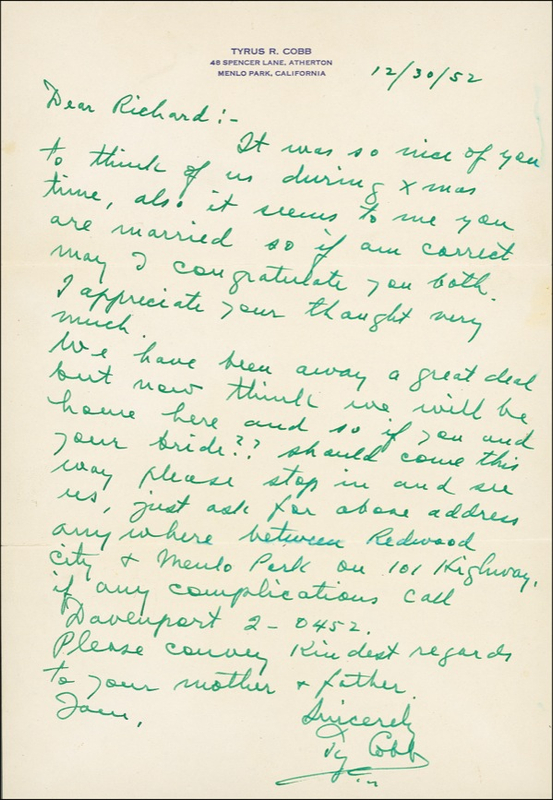 TYRUS R. COBB
48 SPENCER LANE, ATHERTON
MENLO PARK, CALIFORNIA
12/30/52
Dear Richard:-
It was so nice of you
to think of us during Xmas
time, also it seems to me you
are married so if am correct
may I congratulate you both.
I appreciate your thought very
much.
We have been away a great deal
but now think we will be
home here and so if you and
your bride?? should come this
way please stop in and see
us, just ask for above address
anywhere between Redwood
city + Menlo Park on 101 Highway,
if any complications call
Davenport 2-0452.
Please convey kindest regards
to your mother + father.
Sincerely
Ty Cobb